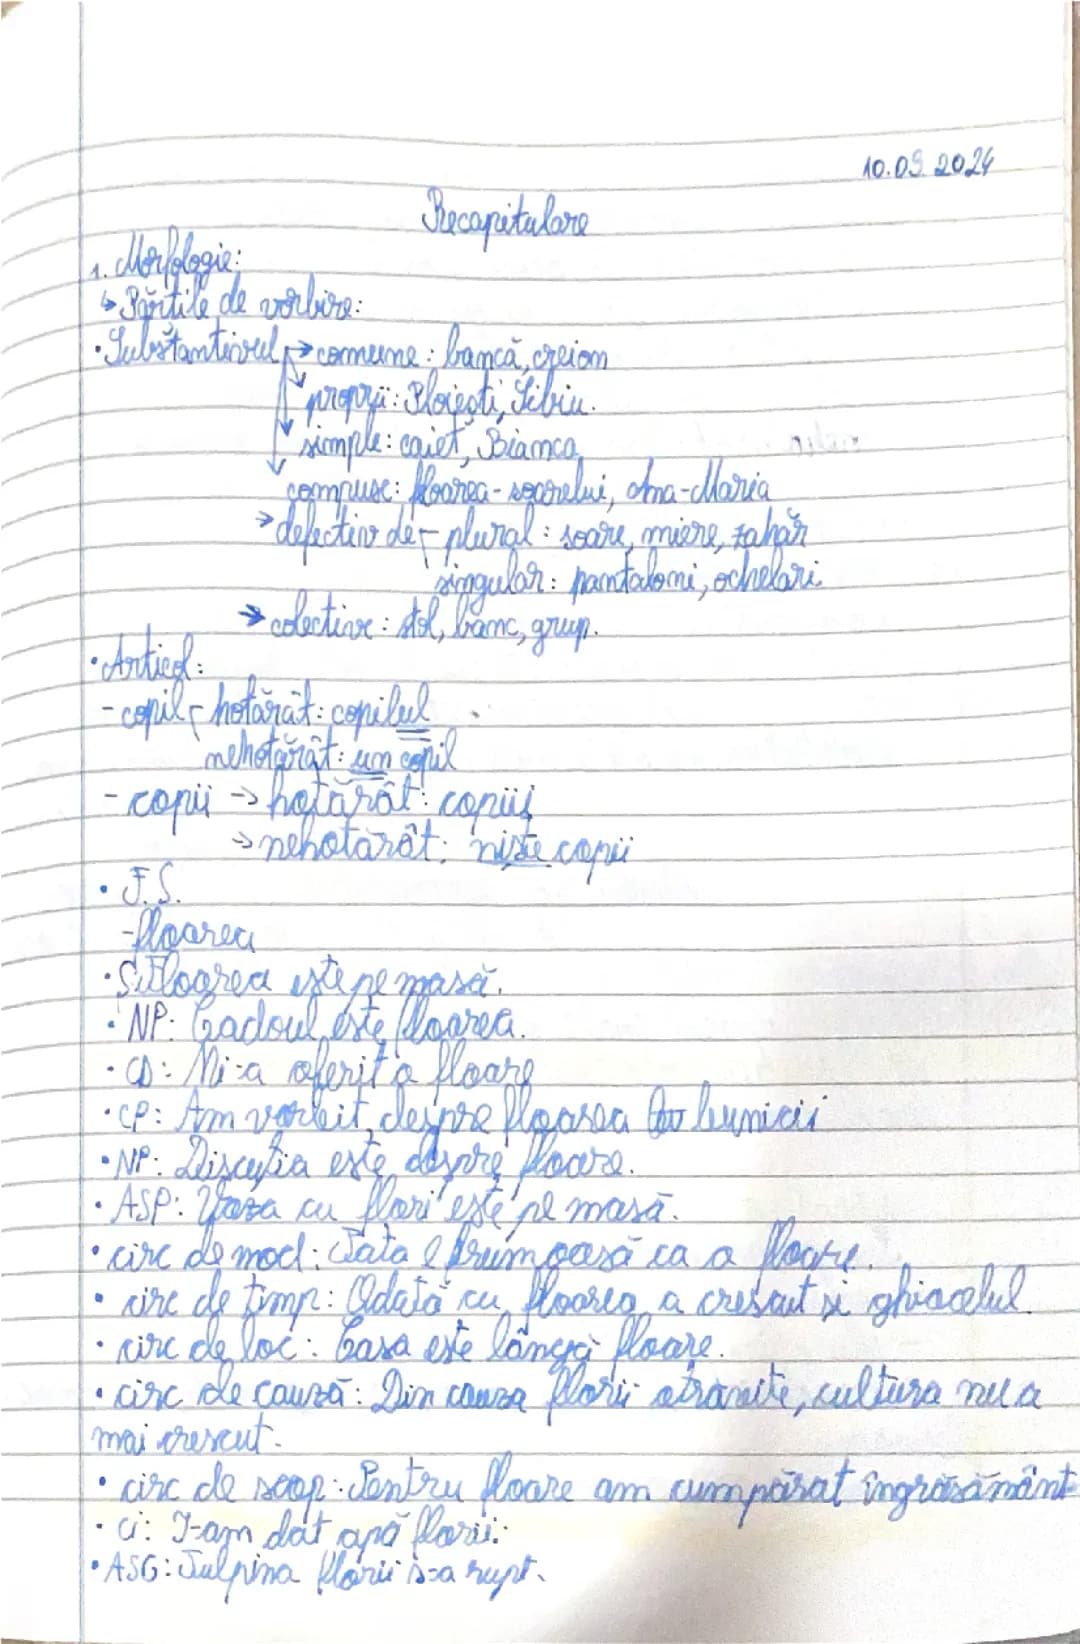 10.09.2024
Recapitulare
1. Morfologie:
↳ Părțile de vorbire:
• Substantivul → comune: bancă, creion
proprii: Ploiești, Sibiu.
simple: caiet, Bianca
compuse: floarea-soarelui, Ana-Maria
→ defectiv de - plural: soare, miere, zahăr
singular: pantaloni, ochelari
→ colective: stol, banc, grup.
• Articol:
- copil - hotărât: copilul
nehotărât: un copil
- copii → hotărât: copiii
→ nehotărât: niște copii
• F.S.
- floarea
• S: Floarea este pe masă.
• NP: Cadoul este floarea.
• CD: Mi-a oferit o floare
• CP: Am vorbit despre floarea bunicii
• NP: Discuția este despre floare.
• ASP: Vaza cu flori este pe masă.
• circ de mod: Fata e frumoasă ca o floare.
• circ de timp: Odată cu floarea a crescut și ghiocelul.
• circ de loc: Casa este lângă floare.
• circ de cauză: Din cauza florii otrăvite, cultura nu a
mai crescut.
• circ de scop: Pentru floare am cumpărat îngrășământ
• Ci: I-am dat apă florii.
• ASG: Tulpina florii s-a rupt.